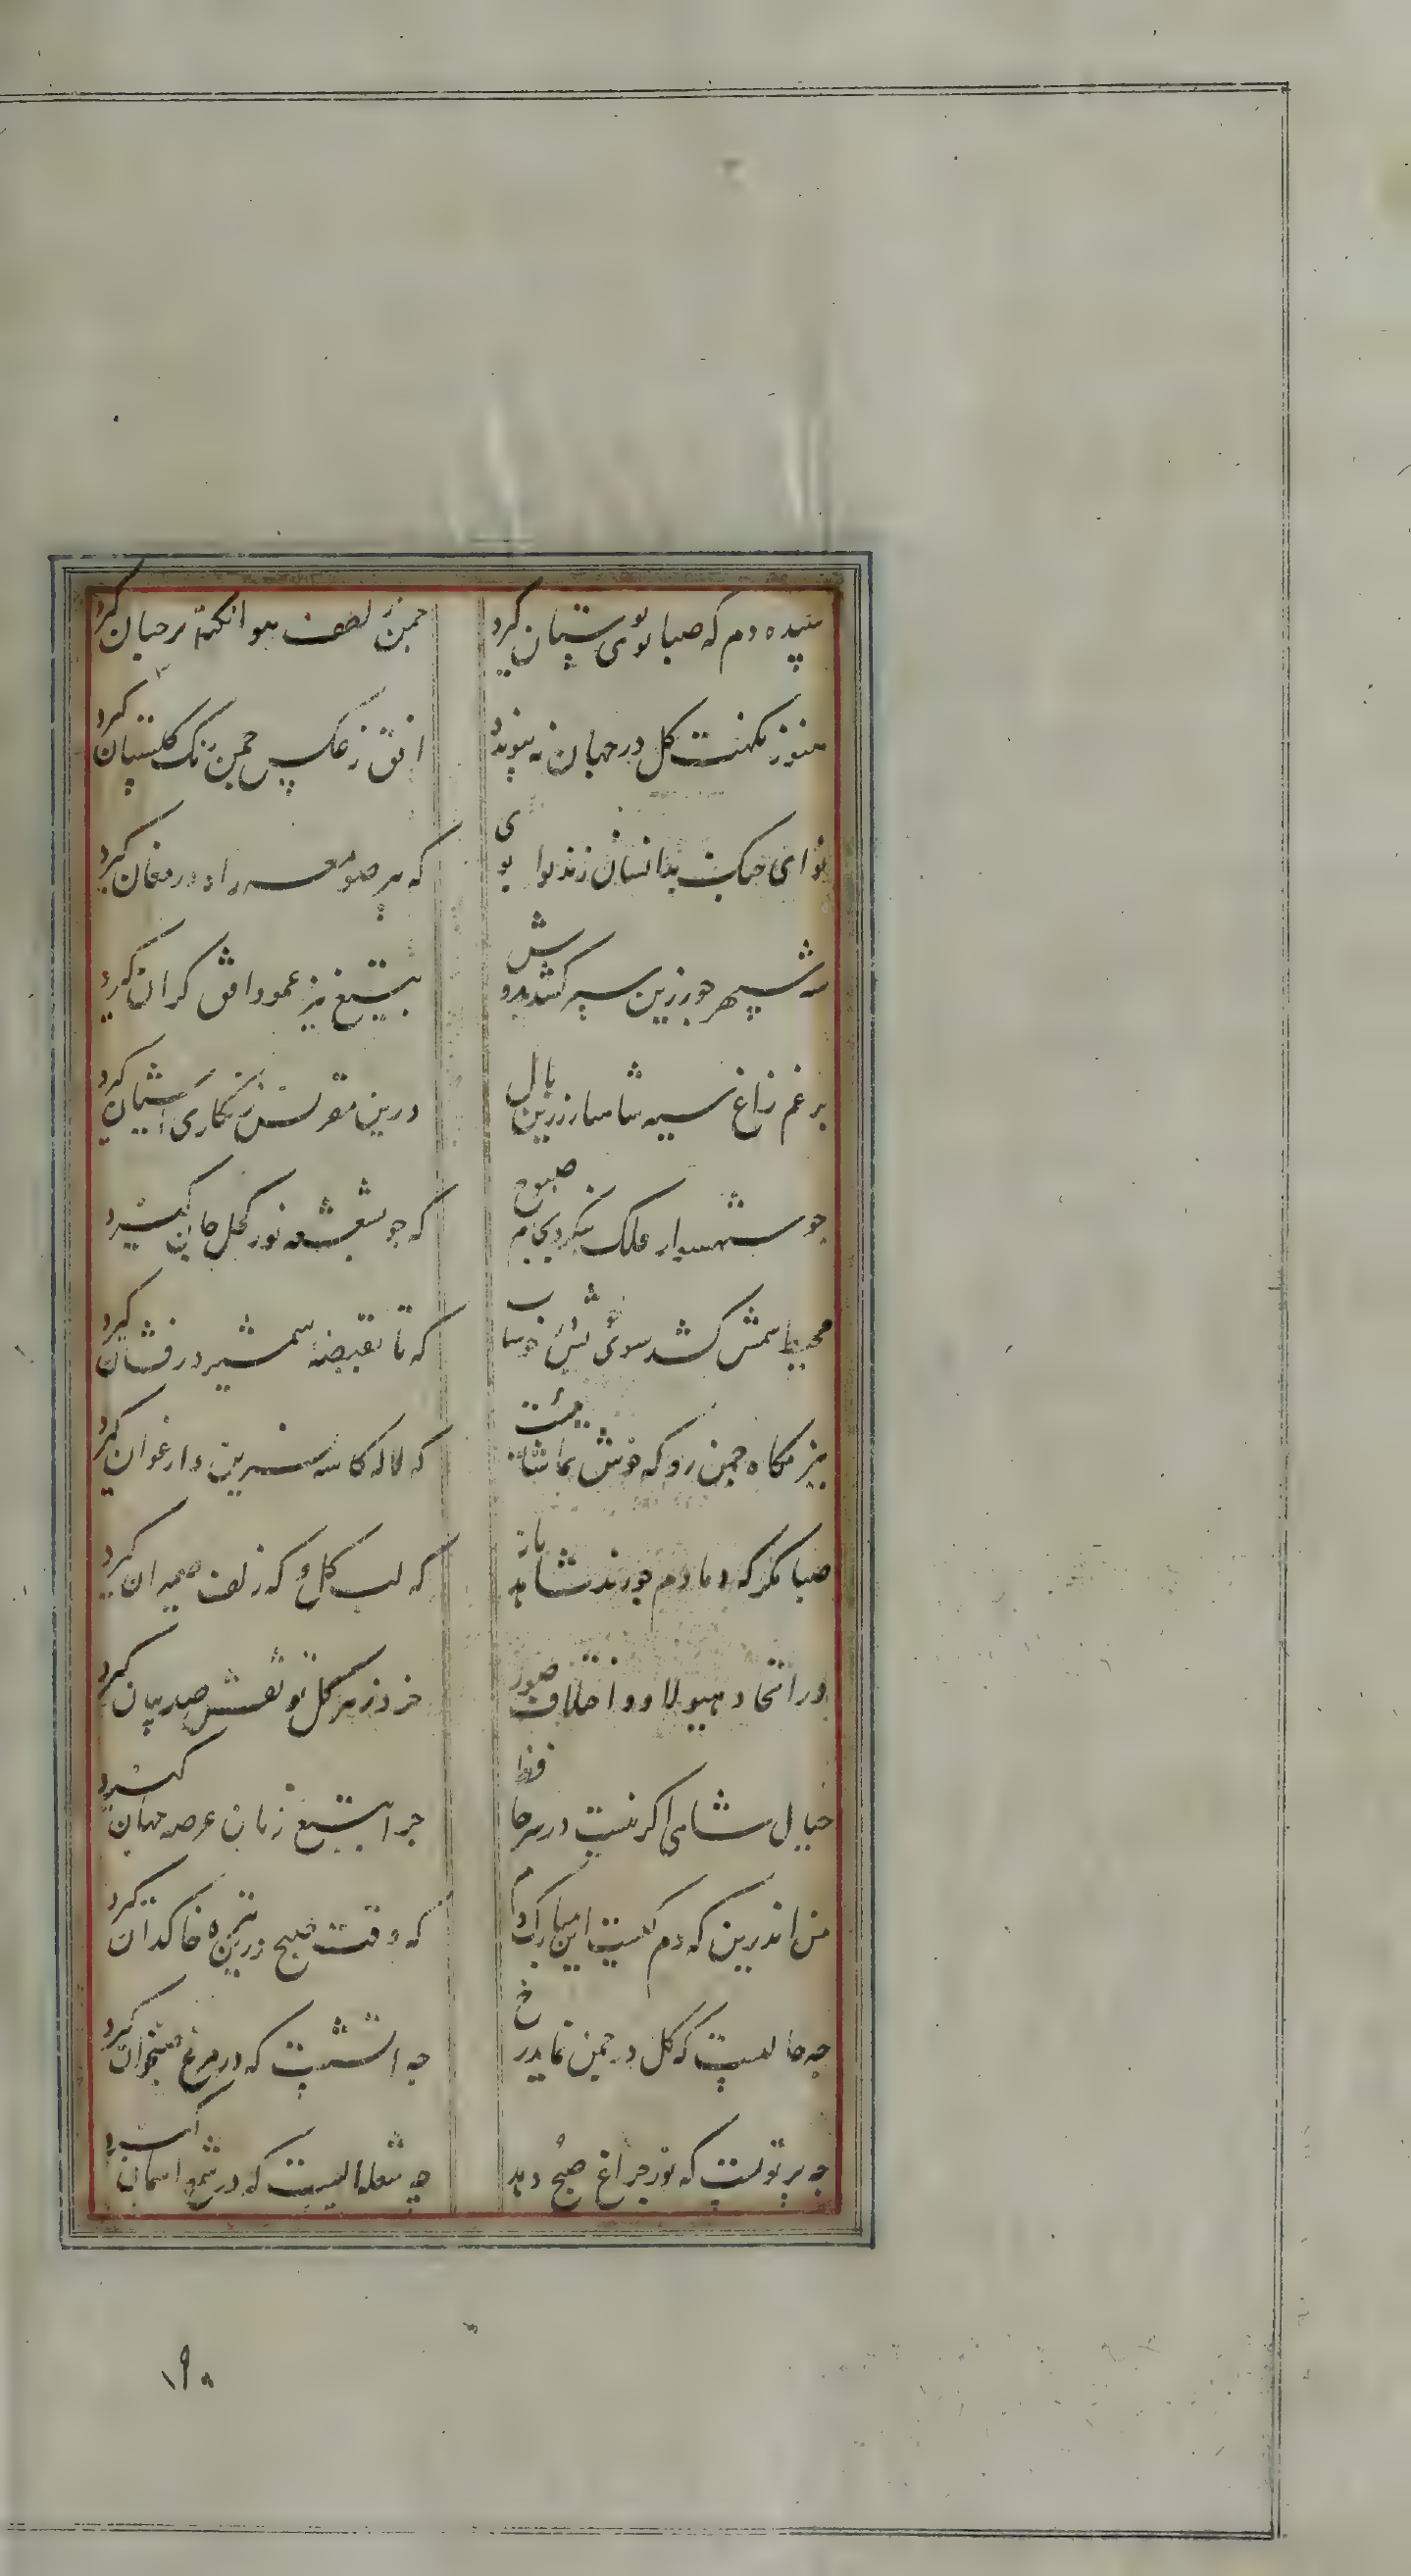 سپیده دم که صبا بوی بستان کیرد چمن ز لطف هوا نکته بر جنان کیرد
هنوز نکهت کل در جهان نه پیوند افق ز عکس چمن رنک کلستان کیرد
نوای جنک بدانسان زند نوا که پیر صومعه راه در مغان کیرد
شه سپهر چو زرین سپر کشد بروی بتیغ تیز عمود افق کران کیرد
برغم زاغ سیه شاهباز زرین بال درین مقرنس زنکاری اشیان کیرد
چو شهسوار فلک بنکرد بجام صبوح که چو بشعشعه نور کحل جان کیرد
محیط شمس کشد سوی خوشاب که تا بقبضه شمشیر در فشان کیرد
ببزمکاه چمن رو که خوش تماشائیست که لاله کاسه نسرین و ارغوان کیرد
صبا نکر که دمادم چو رند شاهد باز که لب کل و که زلف ضمیران کیرد
در اتحاد هیولا و و اختلاف صور خرد ز هر کل نو نقش صد بیان کیرد
خیال شاهی اکر نیست در سر حافظ چرا بتیغ زبان عرصه جهان کیرد
من اندرین که دم کیست این مبارک دم که وقت صبح درین تیره خاکدان کیرد
چه حالیست که کل در چمن نماید رخ چه اتشست که در مرغ صبح خوان کیرد
چه پرتوست که نور چراغ صبح دهد چه شعله ایست که در شمع اسمان کیرد
۱۹۰